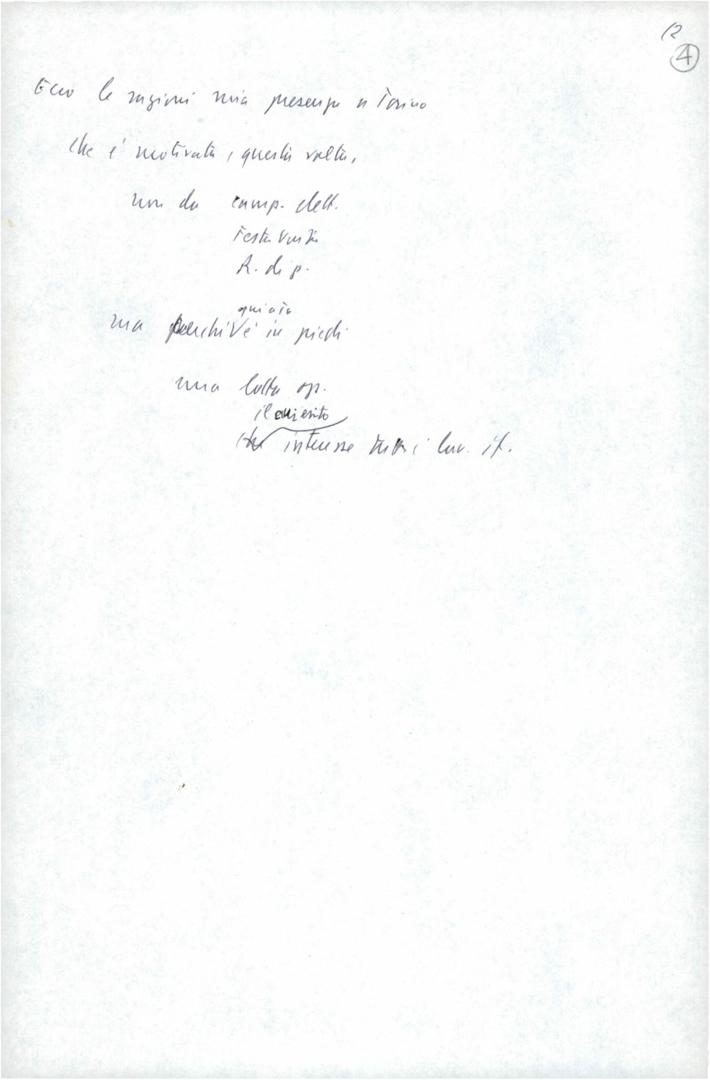 12
4
Ecco le ragioni mia presenza a Torino
che è motivata, questa volta,
non da camp. elett.
Festa Unità
R. di p.
qui a To
ma perché v'è in piedi
una lotta op.
il cui esito
interessa tutti i lav. it.